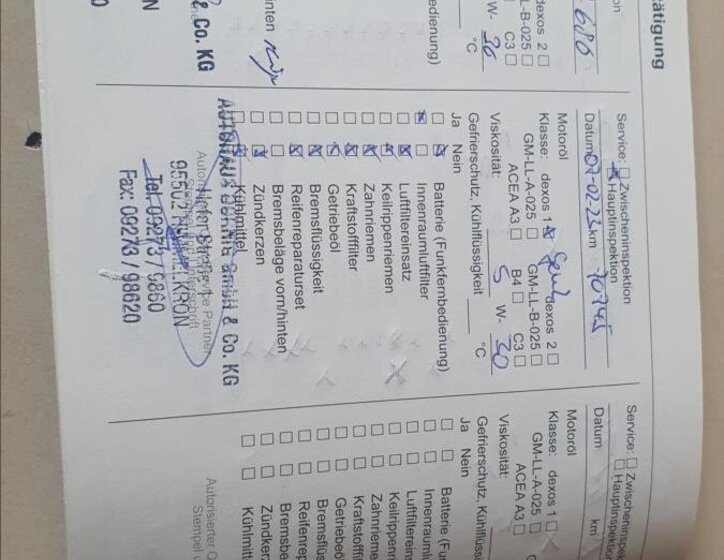 tätigung
686
dexos 2
GM-LL-B-025
C3
W- 30
°C
bedienung)
hinten
& Co. KG
Service: Zwischeninspektion
Hauptinspektion
Datum 07-02-23 km 70745
Motoröl
Klasse: dexos 1 dexos 2
GM-LL-A-025 GM-LL-B-025
ACEA A3 B4 C3
Viskosität: 5 W- 30
Gefrierschutz, Kühlflüssigkeit °C
Ja Nein
Batterie (Funkfernbedienung)
Innenraumluftfilter
Luftfiltereinsatz
Keilrippenriemen
Zahnriemen
Kraftstofffilter
Getriebeöl
Bremsflüssigkeit
Reifenreparaturset
Bremsbeläge vorn/hinten
Zündkerzen
Kühlmittel
GmbH & Co. KG
Service Partner
Tel. 09273 / 9860
Fax: 09273 / 98620
Service: Zwischeninsp
Hauptinspek
Datum km
Motoröl
Klasse: dexos 1
GM-LL-A-025
ACEA A3
Viskosität:
Gefrierschutz, Kühlflüss
Ja Nein
Batterie (Fu
Innenraumlu
Luftfilterein
Keilrippenri
Zahnriemen
Kraftstofffil
Getriebeöl
Bremsflüs
Reifenrep
Bremsbe
Zündker
Kühlmitt
Autorisierter O
Stempel